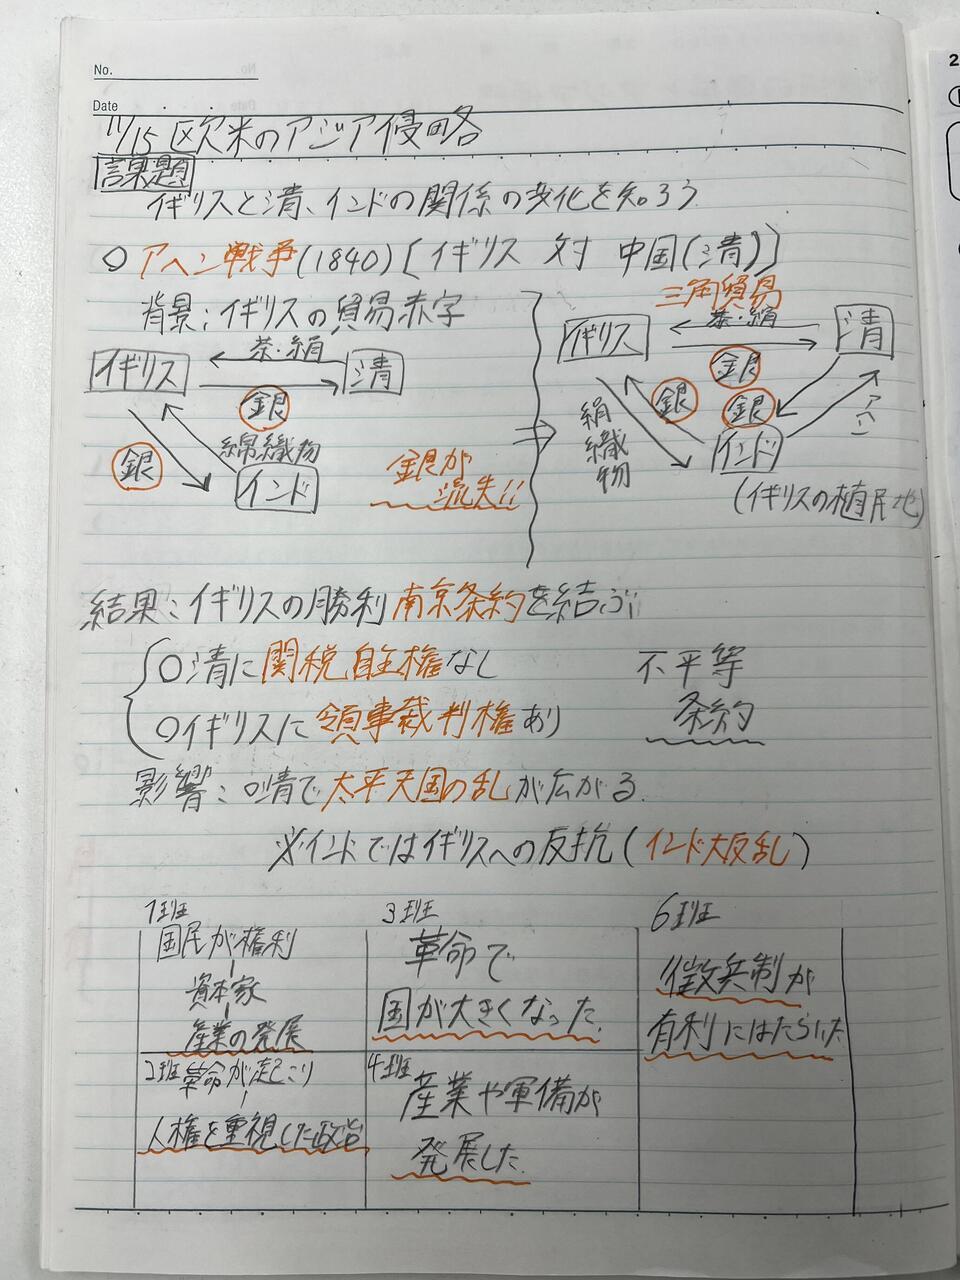 No.
Date
11/15 欧米のアジア侵略
課題
イギリスと清、インドの関係の変化を知ろう
○アヘン戦争(1840)[イギリス 対 中国(清)]
背景:イギリスの貿易赤字
イギリス
茶・絹
清
銀
銀
綿織物
インド
銀が
流失!!
三角貿易
イギリス
茶・絹
清
銀
銀
銀
アヘン
絹織物
インド
(イギリスの植民地)
結果:イギリスの勝利 南京条約を結ぶ
○清に関税自主権なし
○イギリスに領事裁判権あり
不平等
条約
影響:○清で太平天国の乱が広がる.
※インドではイギリスへの反抗(インド大反乱)
1班
国民が権利
資本家
産業の発展
2班 革命が起こり
人権を重視した政治
3班
革命で
国が大きくなった.
4班
産業や軍備が
発展した.
6班
徴兵制が
有利にはたらいた
2